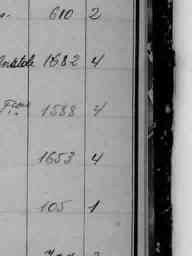 610 2
1682 4
1588 4
1653 4
105 1